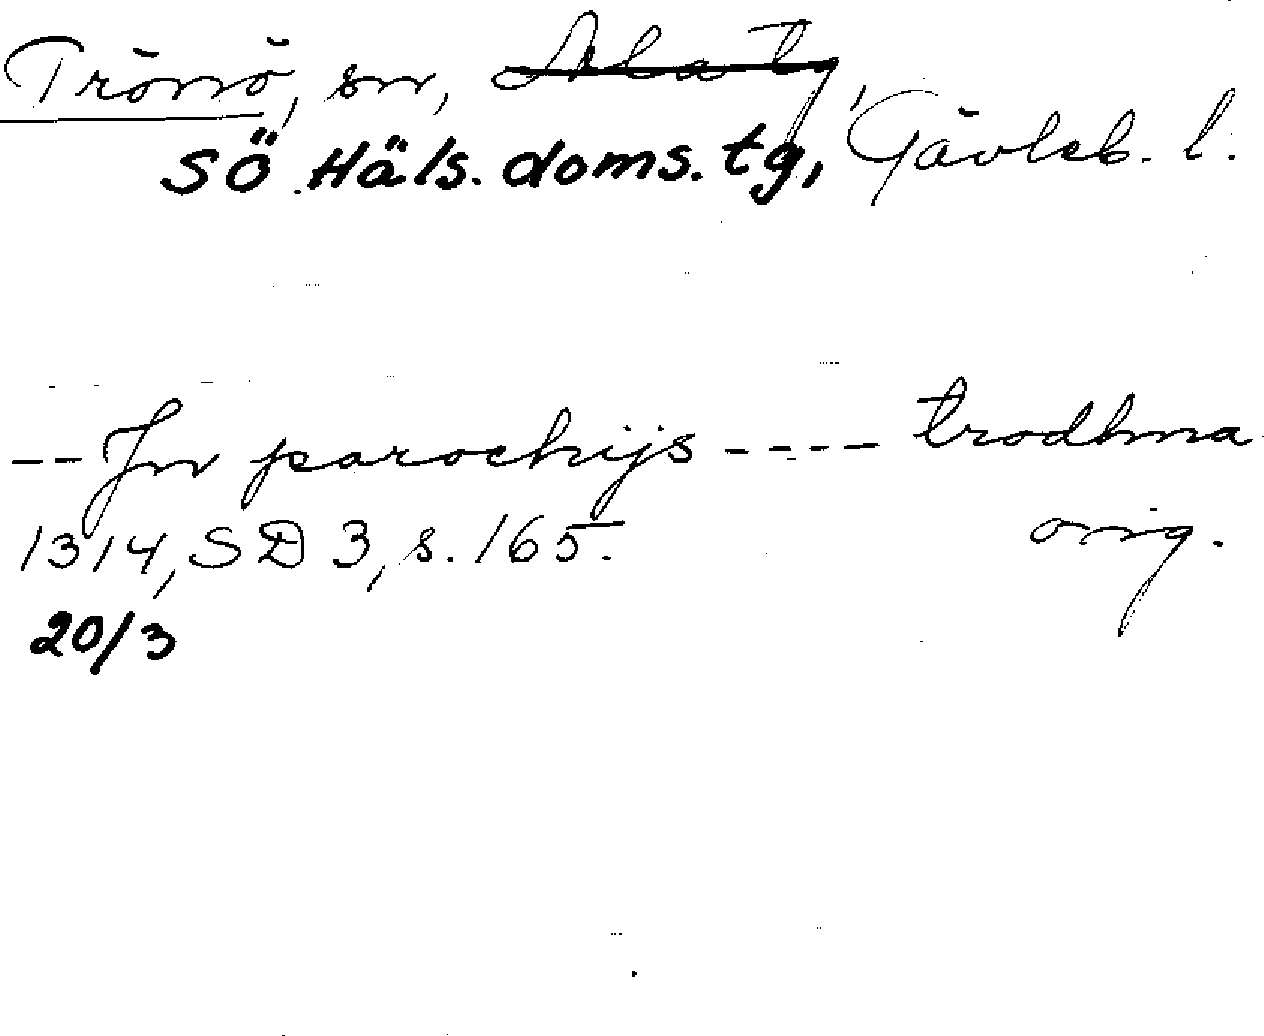 Trönö, sn, Ala tg, Gävleb. l.
SÖ. Häls. doms. tg,
-- Jn parochijs ---- trodhna
1314, SD 3, s. 165. orig.
20/3